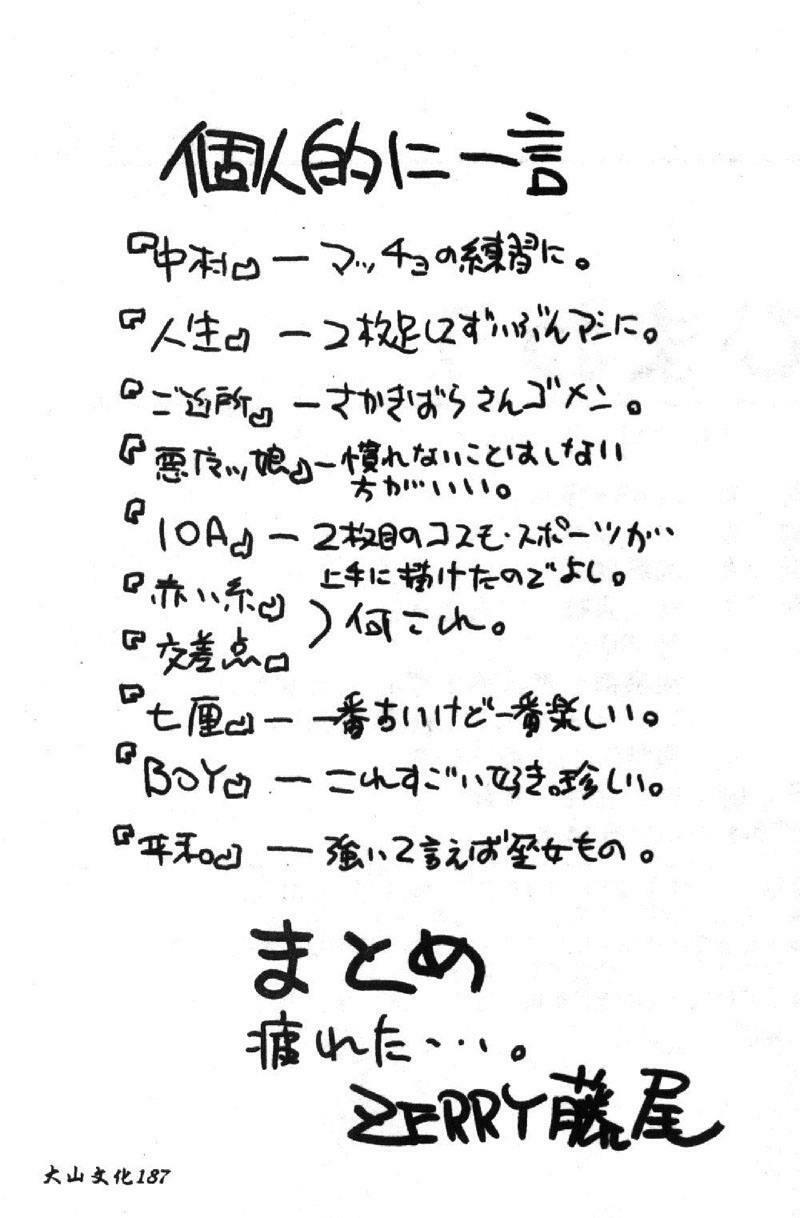 個人的に一言
『中村』— マッチョの練習に。
『人生』— 2枚足してずいぶんマシに。
『ご近所』— さかきばらさんゴメン。
『悪魔ッ娘』— 慣れないことはしない
方がいい。
『10A』— 2枚目のコスモ・スポーツが…
上手に描けたのでよし。
『赤い糸』
『交差点』
)何これ。
『七厘』— 一番古いけど一番楽しい。
『BOY』— これすごい好き。珍しい。
『平和。』— 強いて言えば巫女もの。
まとめ
疲れた…。
ZERRY藤尾
大山文化187